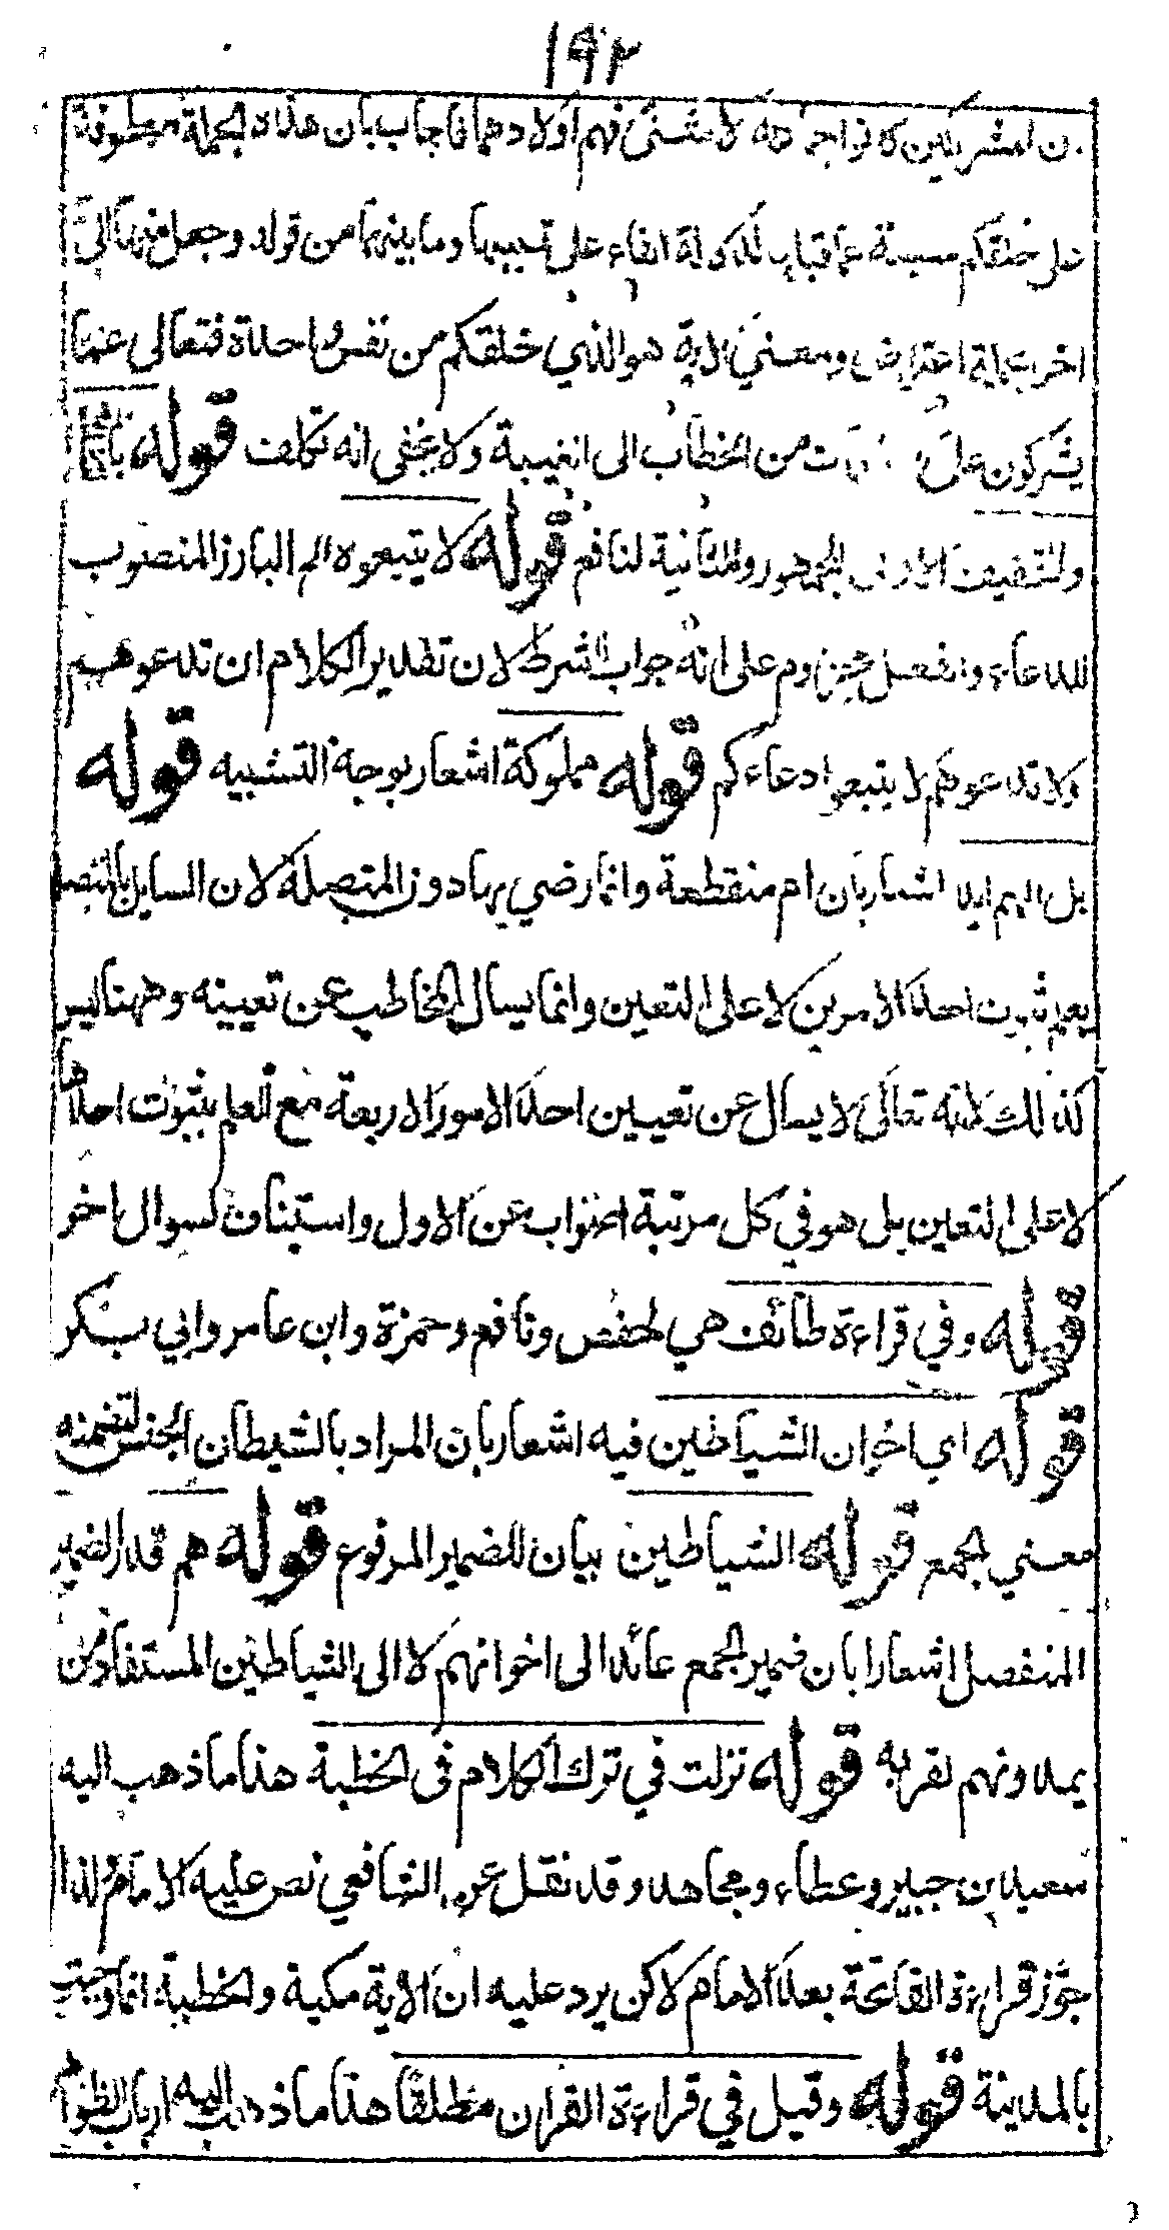 ١٩٢
المشركين كانوا جماعة لا مثنى فهم اولادهما فاجاب بان هذه الجملة معطوفة
على خلقكم مسببة عما قبلها لدلالة الفاء على تسببها وما بينهما من قوله وجعل منها الى
اخر جملة اعتراض ومعنى الاية هو الذي خلقكم من نفس واحدة فتعالى عما
يشركون من الخطاب الى الغيبة ولا يخفى انه تكلف قوله
والتخفيف الاولى للجمهور والثانية لنافع قوله لا يتبعوه الم البارز المنصوب
للدعاء والفعل مجزوم على انه جواب الشرط لان تقدير الكلام ان تدعوهم
ولا تدعوهم لا يتبعوا دعاءكم قوله مملوكة اشعار بوجه التشبيه قوله
بل الهم ايد اشعار بان ام منقطعة وانما رضي بها دون المتصلة لان السايل بالمتصلة
بعد ثبوت احد الامرين لا على التعين وانما يسال المخاطب عن تعيينه وههنا ليس
كذلك لانه تعالى لا يسال عن تعيين احد الامور الاربعة مع العلم بثبوت احدها
لا على التعين بل هو في كل مرتبة اضراب عن الاول واستيناف لسوال اخر
قوله وفي قراءة طائف هي لحفص ونافع وحمزة وابن عامر وابي بكر
قوله اي اخوان الشياطين فيه اشعار بان المراد بالشيطان الجنس لتضمنه
معنى الجمع قوله الشياطين بيان للضمير المرفوع قوله هم قدر الضمير
المنفصل اشعارا بان ضمير الجمع عائد الى اخوانهم لا الى الشياطين المستفاد من
يمدونهم لقربه قوله نزلت في ترك الكلام فى الخطبة هذا ما ذهب اليه
سعيد بن جبير وعطاء ومجاهد وقد نقل عن الشافعي نص عليه الامام لذا
جوز قراءة الفاتحة بعد الامام لاكن يرد عليه ان الاية مكية والخطبة انما وجبت
بالمدينة قوله وقيل في قراءة القران مطلقا هذا ما ذهب اليه ارباب الظواهر